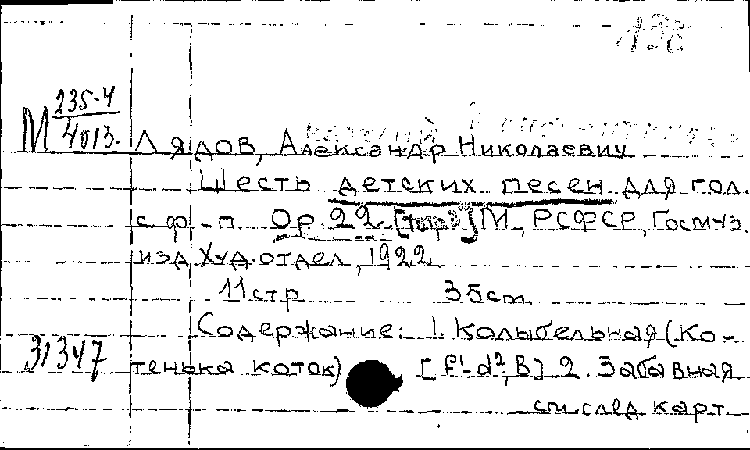 138
М 235-4
4013.
Лядов, Александр Николаевич
Шесть детских песен для гол.
с ф.-п. Op. 22. М., РСФСР, Госмуз.
изд Худ. отдел, 1922
11 стр 35 см
Содержание: 1. Колыбельная (Ко-
31347
тенька коток) [f¹-d², B] 2. Забавная
см след карт.